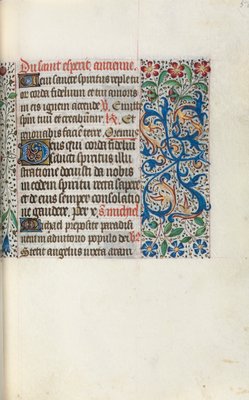 Du saint esperit antienne.
Veni sancte spiritus reple tuor
cor corda fidelium et tui amoris
in eis ignem accende. V. Emitte
spm tuu et creabunt. R. Et
renovabis facie terre. Oremus
Deus qui corda fideliu
sancti spiritus illu
stratione docuisti da nobis
in eodem spiritu recta sapere
et de eius semper consolatio
ne gaudere. per x. S. michiel
Michael preposite paradisi
veni in adiutorio populo dei. V.
Stetit angelus iuxta aram